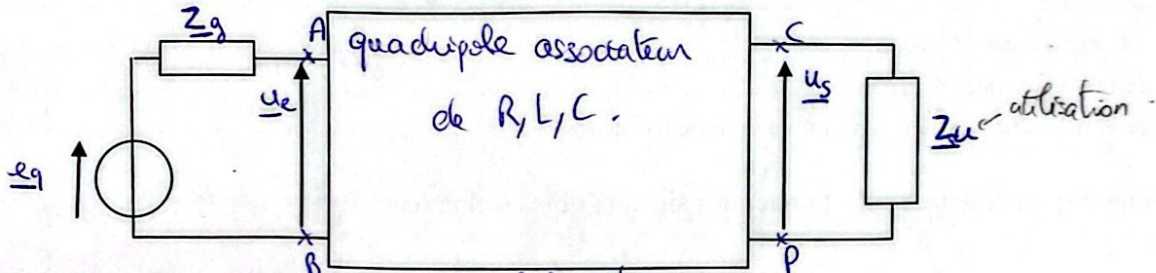 Zg
A
quadripole associateur
C
ue
de R, L, C.
us
Zu
utilisation
eg
B
P